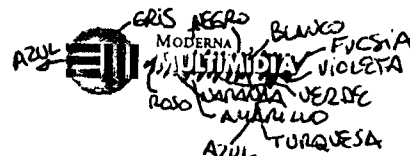 GRIS
NEGRO
BLANCO
AZUL
MODERNA
MULTIMIDIA
FUCSIA
VIOLETA
ROSO
NARANJA
VERDE
AMARILLO
TURQUESA
AZUL